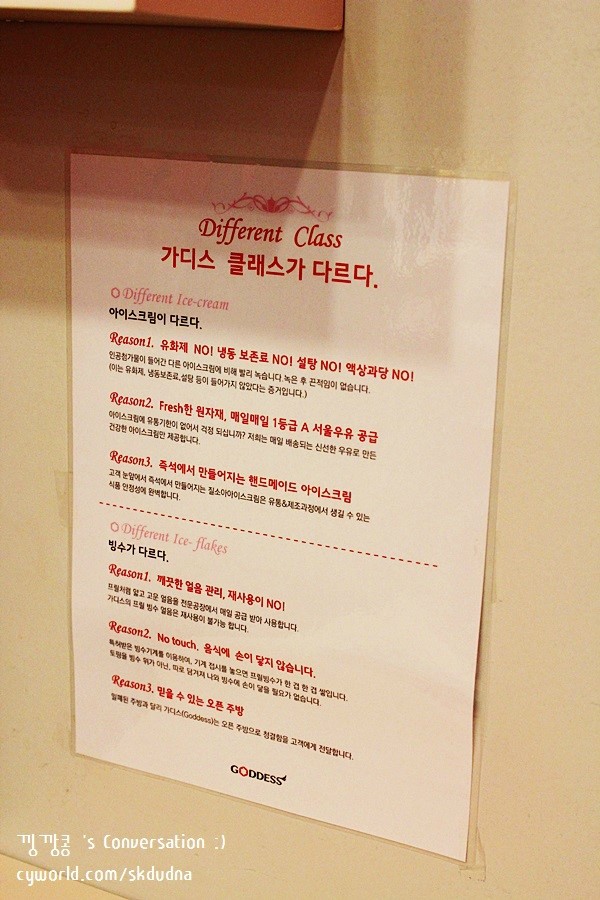 Different Class
가디스 클래스가 다르다.
Different Ice-cream
아이스크림이 다르다.
Reason1. 유화제 NO! 냉동 보존료 NO! 설탕 NO! 액상과당 NO!
인공첨가물이 들어간 다른 아이스크림에 비해 빨리 녹습니다.녹은 후 끈적임이 없습니다.
(이는 유화제, 냉동보존료,설탕 등이 들어가지 않았다는 증거입니다.)
Reason2. Fresh한 원자재, 매일매일 1등급 A 서울우유 공급
아이스크림에 유통기한이 없어서 걱정 되십니까? 저희는 매일 배송되는 신선한 우유로 만든
건강한 아이스크림만 제공합니다.
Reason3. 즉석에서 만들어지는 핸드메이드 아이스크림
고객 눈앞에서 즉석에서 만들어지는 질소아이스크림은 유통&제조과정에서 생길 수 있는
식품 안정성에 완벽합니다.
Different Ice- flakes
빙수가 다르다.
Reason1. 깨끗한 얼음 관리, 재사용이 NO!
프릴처럼 얇고 고운 얼음을 전문공장에서 매일 공급 받아 사용합니다.
가디스의 프릴 빙수 얼음은 재사용이 불가능 합니다.
Reason2. No touch, 음식에 손이 닿지 않습니다.
특허받은 빙수기계를 이용하여, 기계 접시를 놓으면 프릴빙수가 한 겹 한 겹 쌓입니다.
토핑을 빙수 위가 아닌, 따로 담겨져 나와 빙수에 손이 닿을 필요가 없습니다.
Reason3. 믿을 수 있는 오픈 주방
밀폐된 주방과 달리 가디스(Goddess)는 오픈 주방으로 청결함을 고객에게 전달합니다.
GODDESS
깽깡콩 's Conversation :)
cyworld.com/skdudna